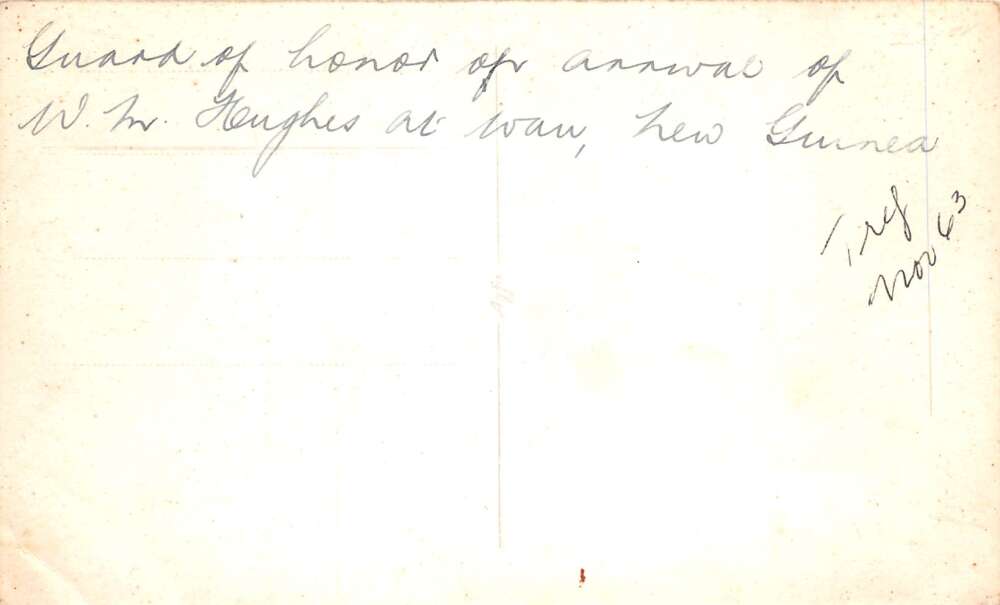 Guard of honor on arrival of
W. M. Hughes at Wau, New Guinea
Nov 63